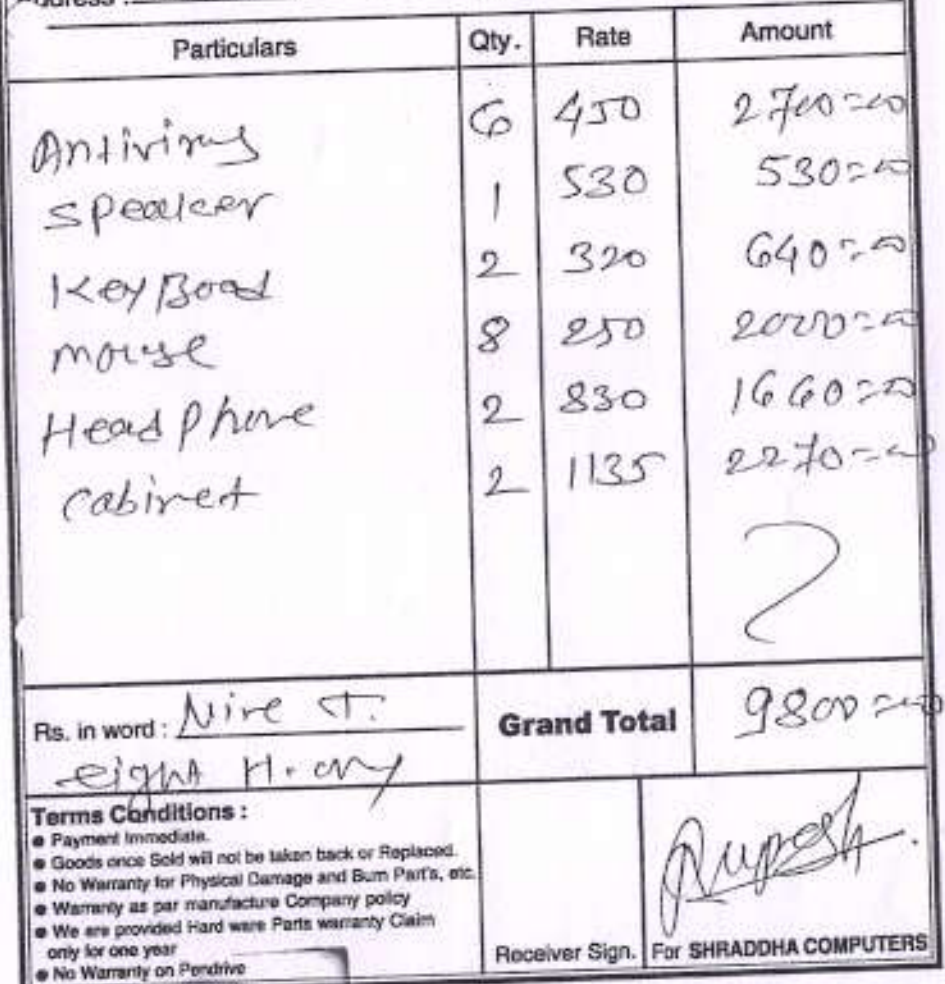 Address :
Particulars Qty. Rate Amount
Antivirus 6 450 2700=00
Speaker 1 530 530=00
KeyBoad 2 320 640=00
mouse 8 250 2000=00
Head Phone 2 830 1660=00
Cabinet 2 1135 2270=00
Rs. in word : Nine T. Grand Total 9800=00
eight H. only
Terms Conditions :
● Payment Immediate.
● Goods once Sold will not be taken back or Replaced.
● No Warranty for Physical Damage and Burn Part's, etc.
● Warranty as par manufacture Company policy
● We are provided Hard ware Parts warranty Claim
only for one year
● No Warranty on Pendrive
Rupesh
Receiver Sign. For SHRADDHA COMPUTERS